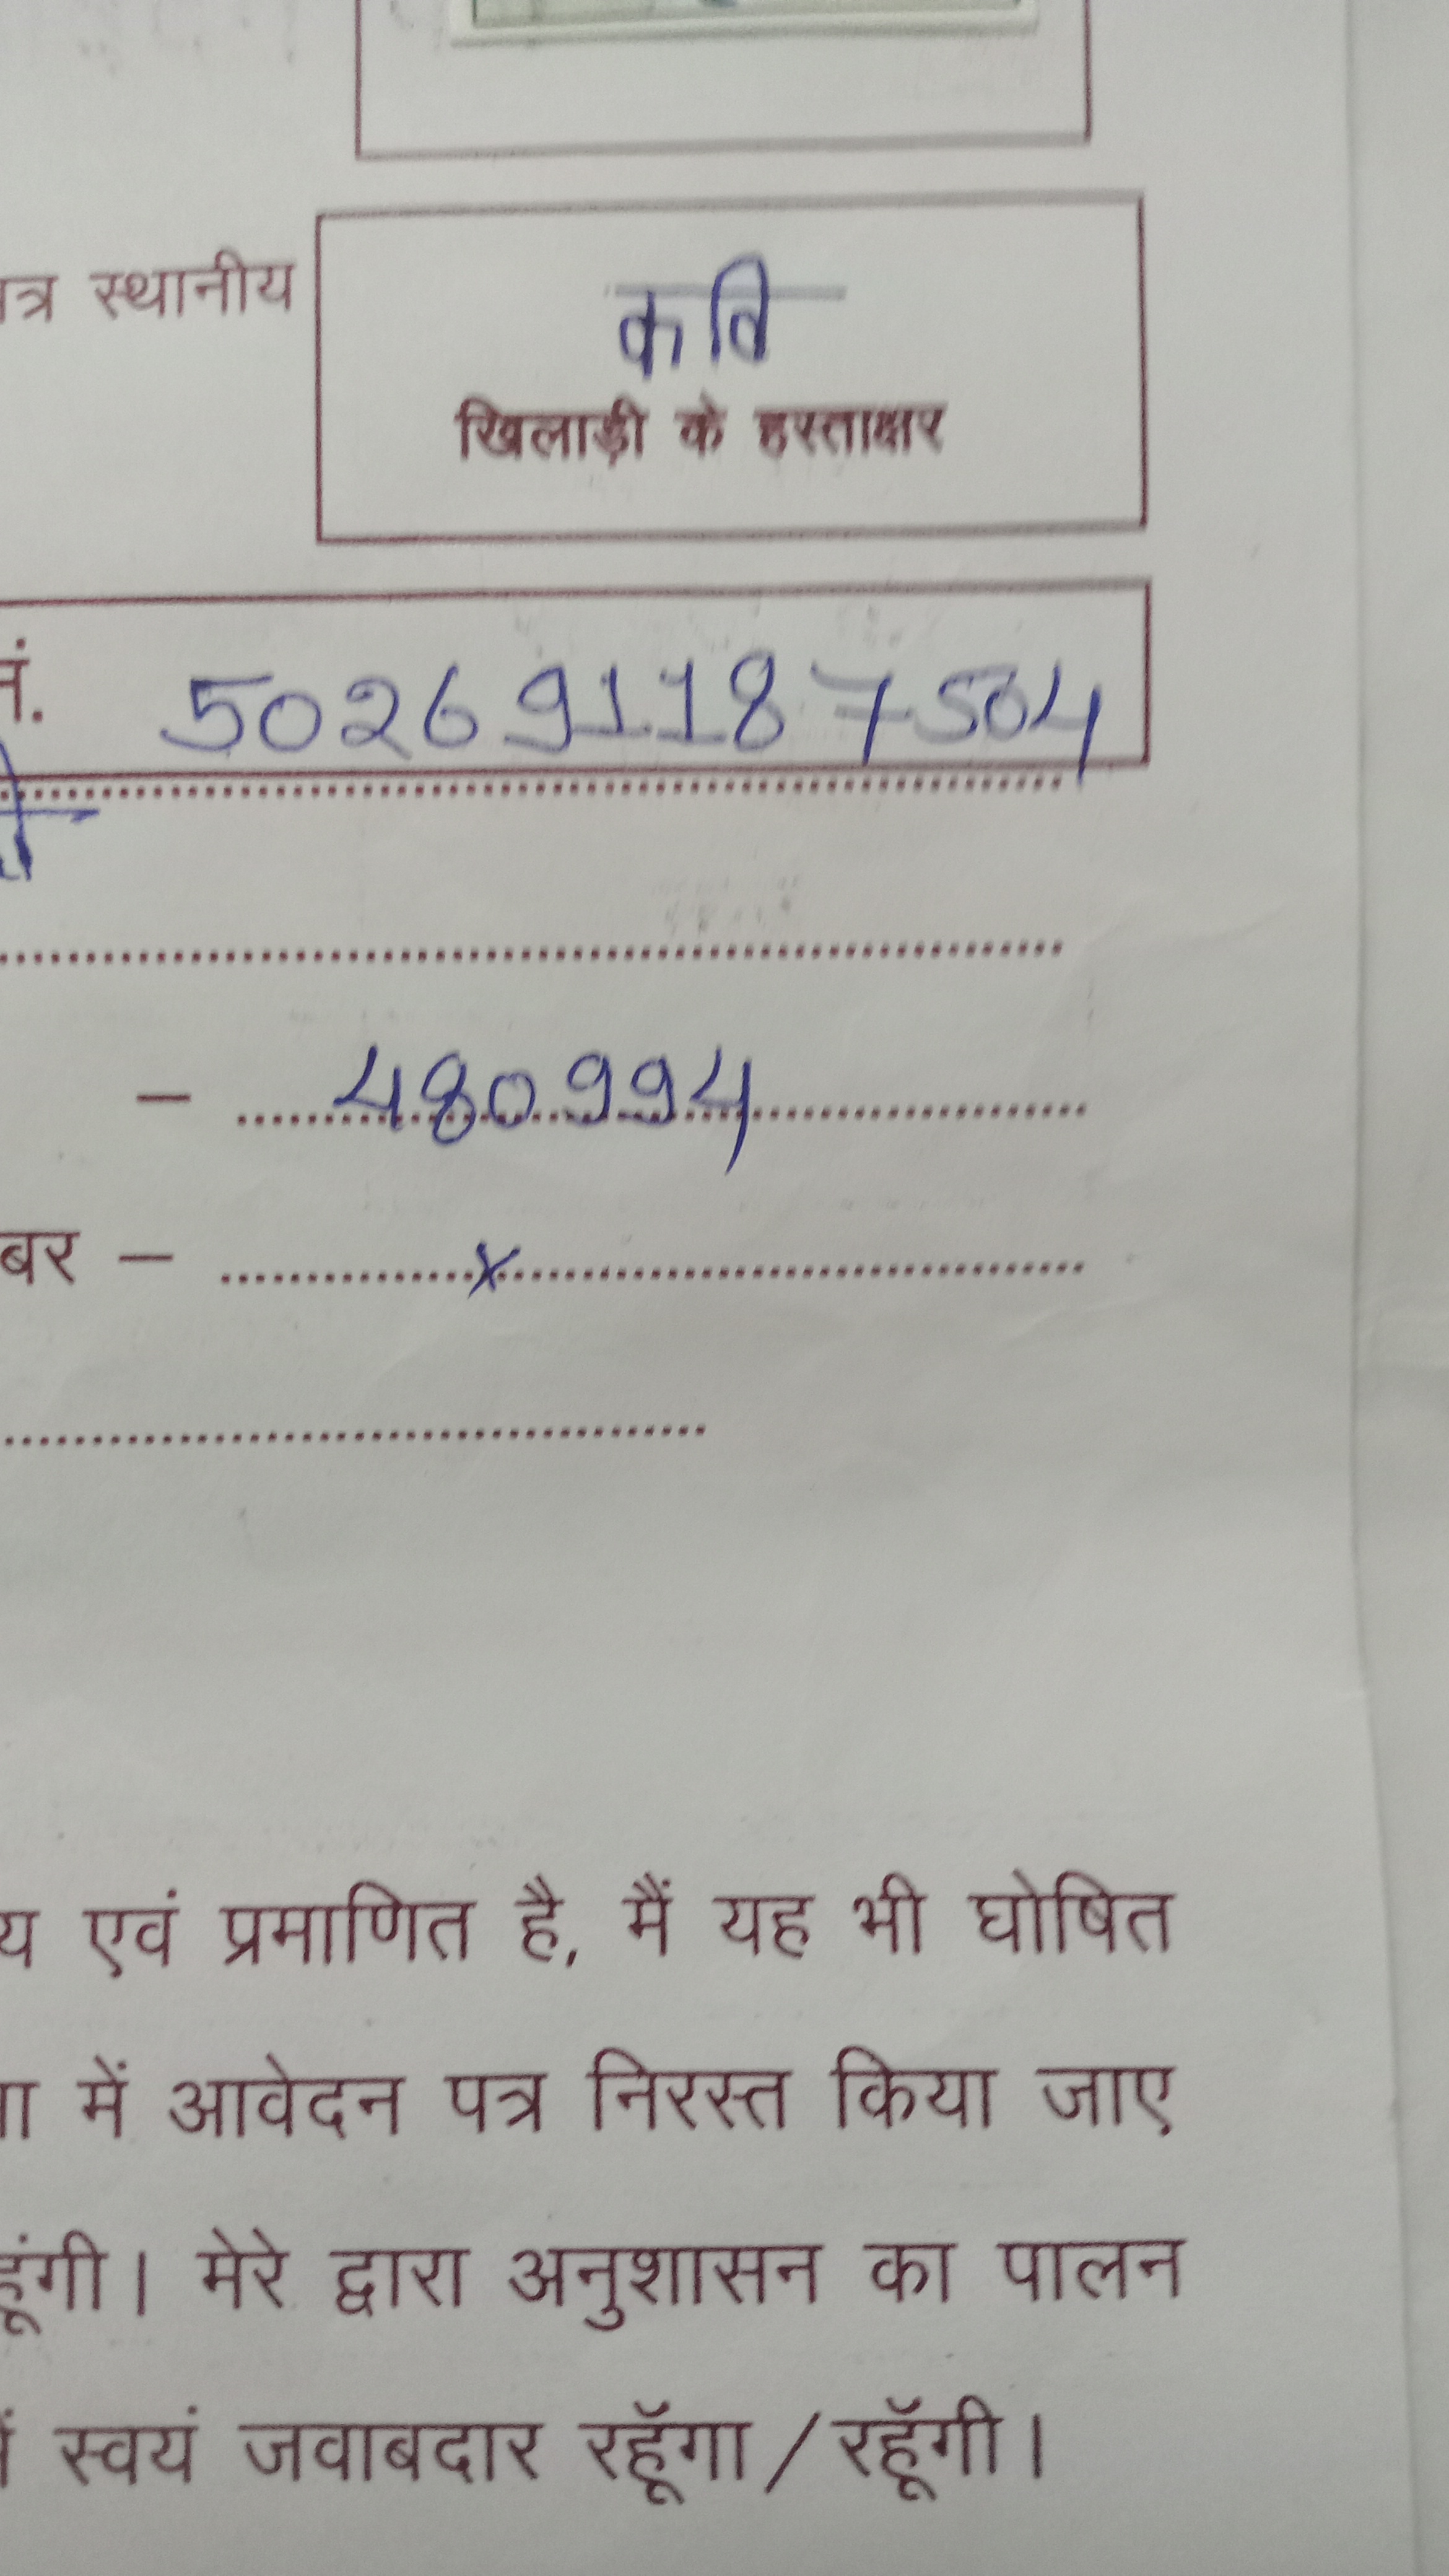 त्र स्थानीय
कवि
खिलाड़ी के हस्ताक्षर
नं. 502691187504
– 480994
बर – x
य एवं प्रमाणित है, मैं यह भी घोषित
में आवेदन पत्र निरस्त किया जाए
हूंगी। मेरे द्वारा अनुशासन का पालन
स्वयं जवाबदार रहूॅगा/रहूॅगी।